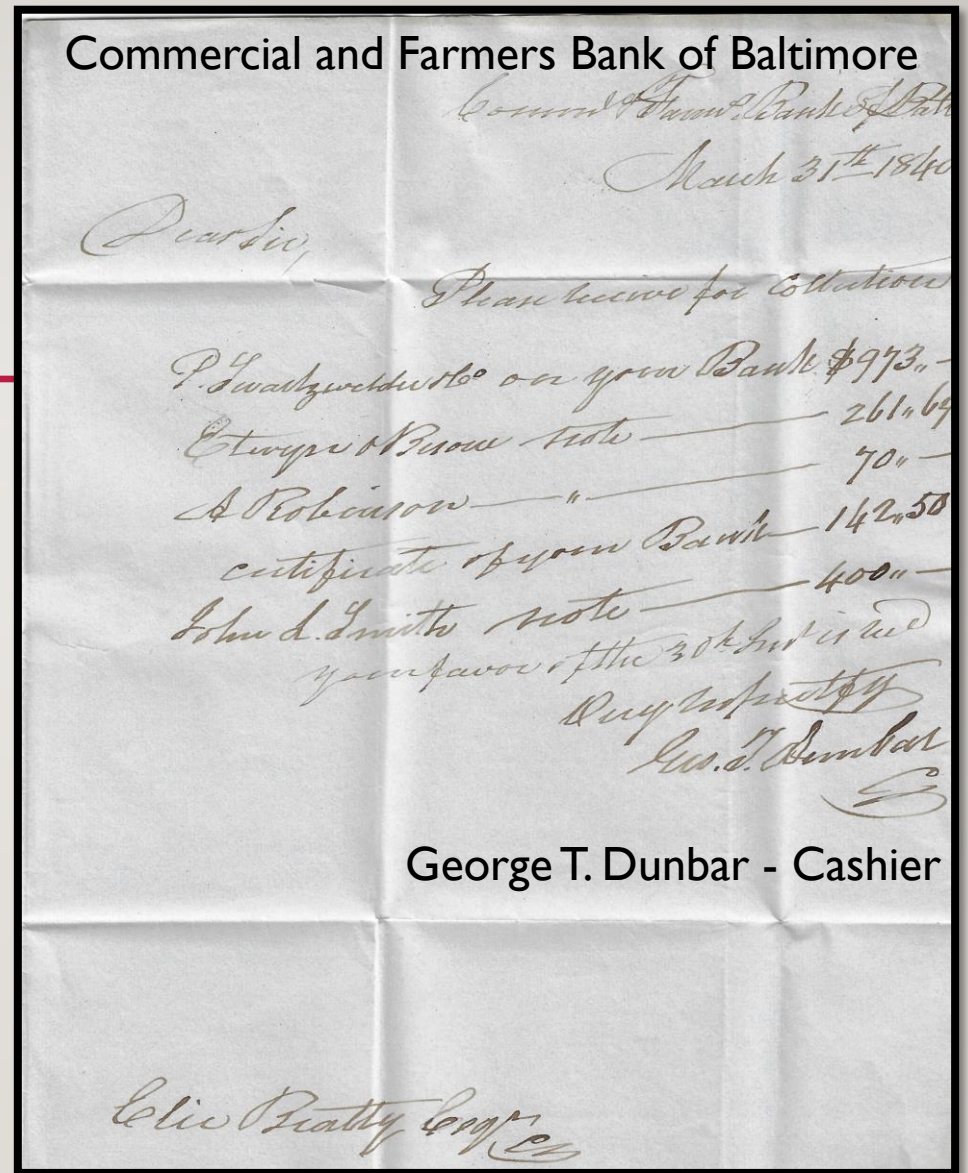 Commercial and Farmers Bank of Baltimore
Comml & Farms. Bank of Balt
March 31th 1840
Dear Sir,
Please receive for collection
P. Swartzwelder & Co on your Bank $973,, —
& Beson note — 261,,64
A Robinson — " — 70,, —
certificate of your Bank — 142,,50
John L. Smith note — 400,, —
your favor of the 30th Inst is recd
Very respectfy
Geo. T. Dunbar
George T. Dunbar - Cashier
Elie Beatty Esqr